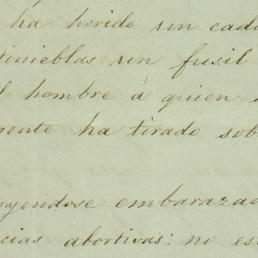 ha herido un cad
tinieblas un fusil
l hombre á quien
mente ha tirado sob
yendose embarazad
cias abortivas: no es